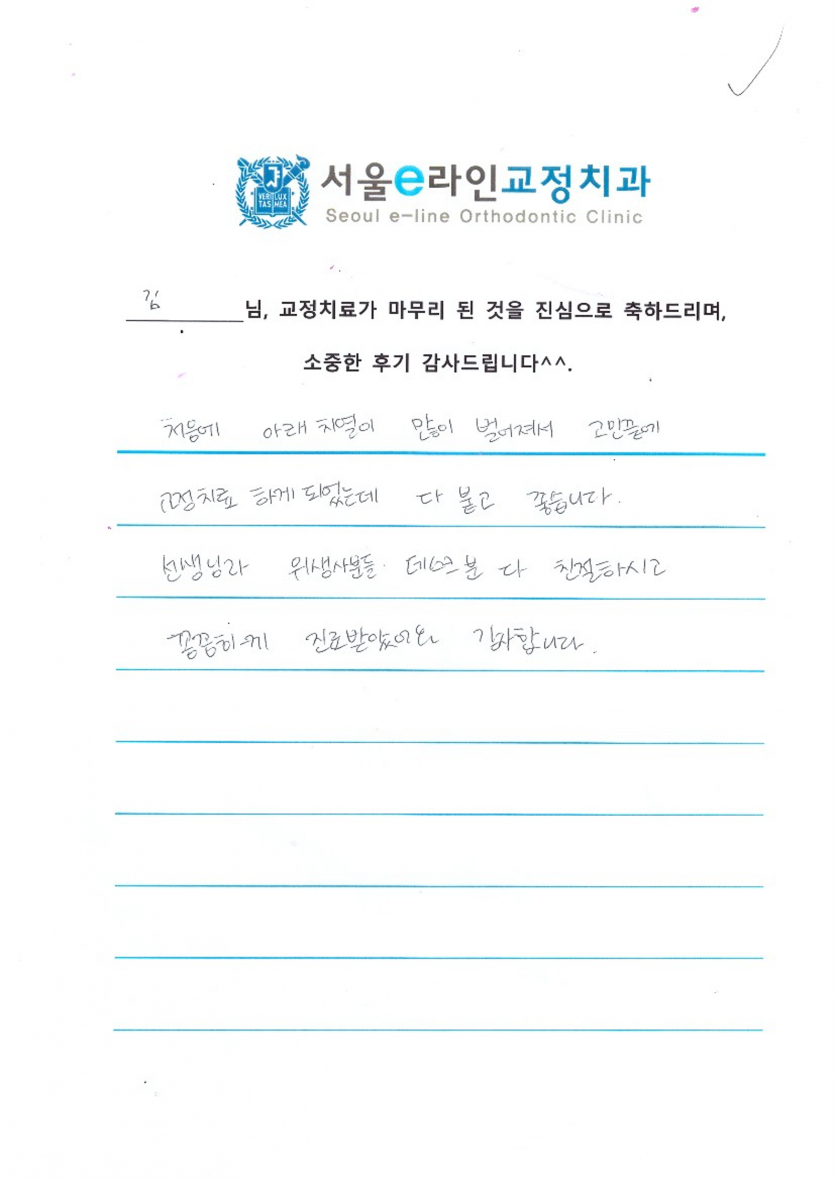 서울e라인교정치과
Seoul e-line Orthodontic Clinic
VERI LUX
TAS MEA
김 님, 교정치료가 마무리 된 것을 진심으로 축하드리며,
소중한 후기 감사드립니다^^.
처음에 아래 치열이 많이 벌어져서 고민끝에
교정치료 하게 되었는데 다 붙고 좋습니다.
선생님과 위생사분들 데스크분 다 친절하시고
꼼꼼하게 진료받았어요 감사합니다.